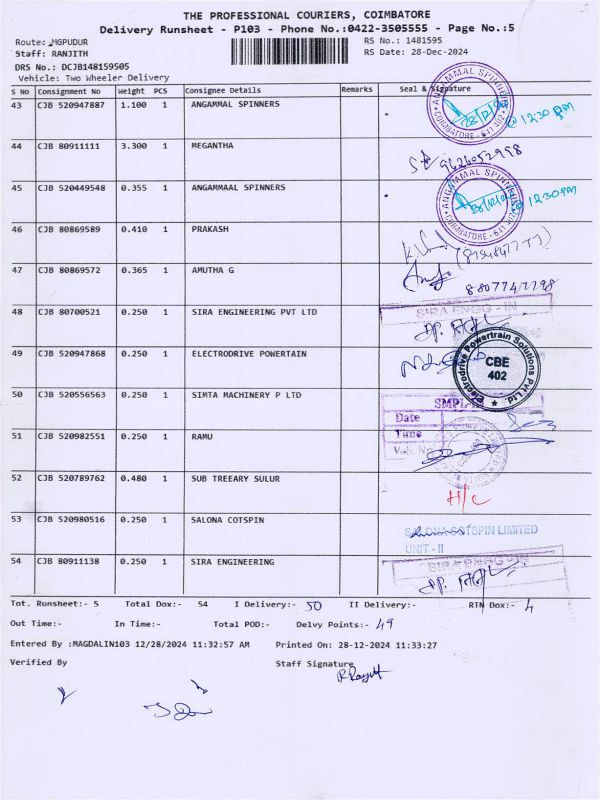 THE PROFESSIONAL COURIERS, COIMBATORE
Delivery Runsheet - P103 - Phone No.:0422-3505555 - Page No.:5
Route: MGPUDUR RS No.: 1481595
Staff: RANJITH RS Date: 28-Dec-2024
DRS No.: DCJB148159505
Vehicle: Two Wheeler Delivery
S No Consignment No Weight PCS Consignee Details Remarks Seal & Signature
43 CJB 520947887 1.100 1 ANGAMMAL SPINNERS
ANGAMMAL SPINNERS COIMBATORE - 641 402 @ 12:30 pm
44 CJB 80911111 3.300 1 MEGANTHA 9626052998
45 CJB 520449548 0.355 1 ANGAMMAAL SPINNERS
ANGAMMAL SPINNERS COIMBATORE - 641 402 @ 12:30 pm
46 CJB 80869589 0.410 1 PRAKASH
47 CJB 80869572 0.365 1 AMUTHA G 8807747798
48 CJB 80700521 0.250 1 SIRA ENGINEERING PVT LTD SIRA ENGG - IN
49 CJB 520947868 0.250 1 ELECTRODRIVE POWERTAIN
Electrodrive Powertrain Solutions Pvt Ltd. CBE 402
50 CJB 520556563 0.250 1 SIMTA MACHINERY P LTD
Date
Time
51 CJB 520982551 0.250 1 RAMU
52 CJB 520789762 0.480 1 SUB TREEARY SULUR H/c
53 CJB 520980516 0.250 1 SALONA COTSPIN SALONA COTSPIN LIMITED
UNIT - II
54 CJB 80911138 0.250 1 SIRA ENGINEERING SIRA ENGG - IN
Tot. Runsheet:- 5 Total Dox:- 54 I Delivery:- 50 II Delivery:- RTN Dox:- 4
Out Time:- In Time:- Total POD:- Delvy Points:- 49
Entered By :MAGDALIN103 12/28/2024 11:32:57 AM Printed On: 28-12-2024 11:33:27
Verified By Staff Signature